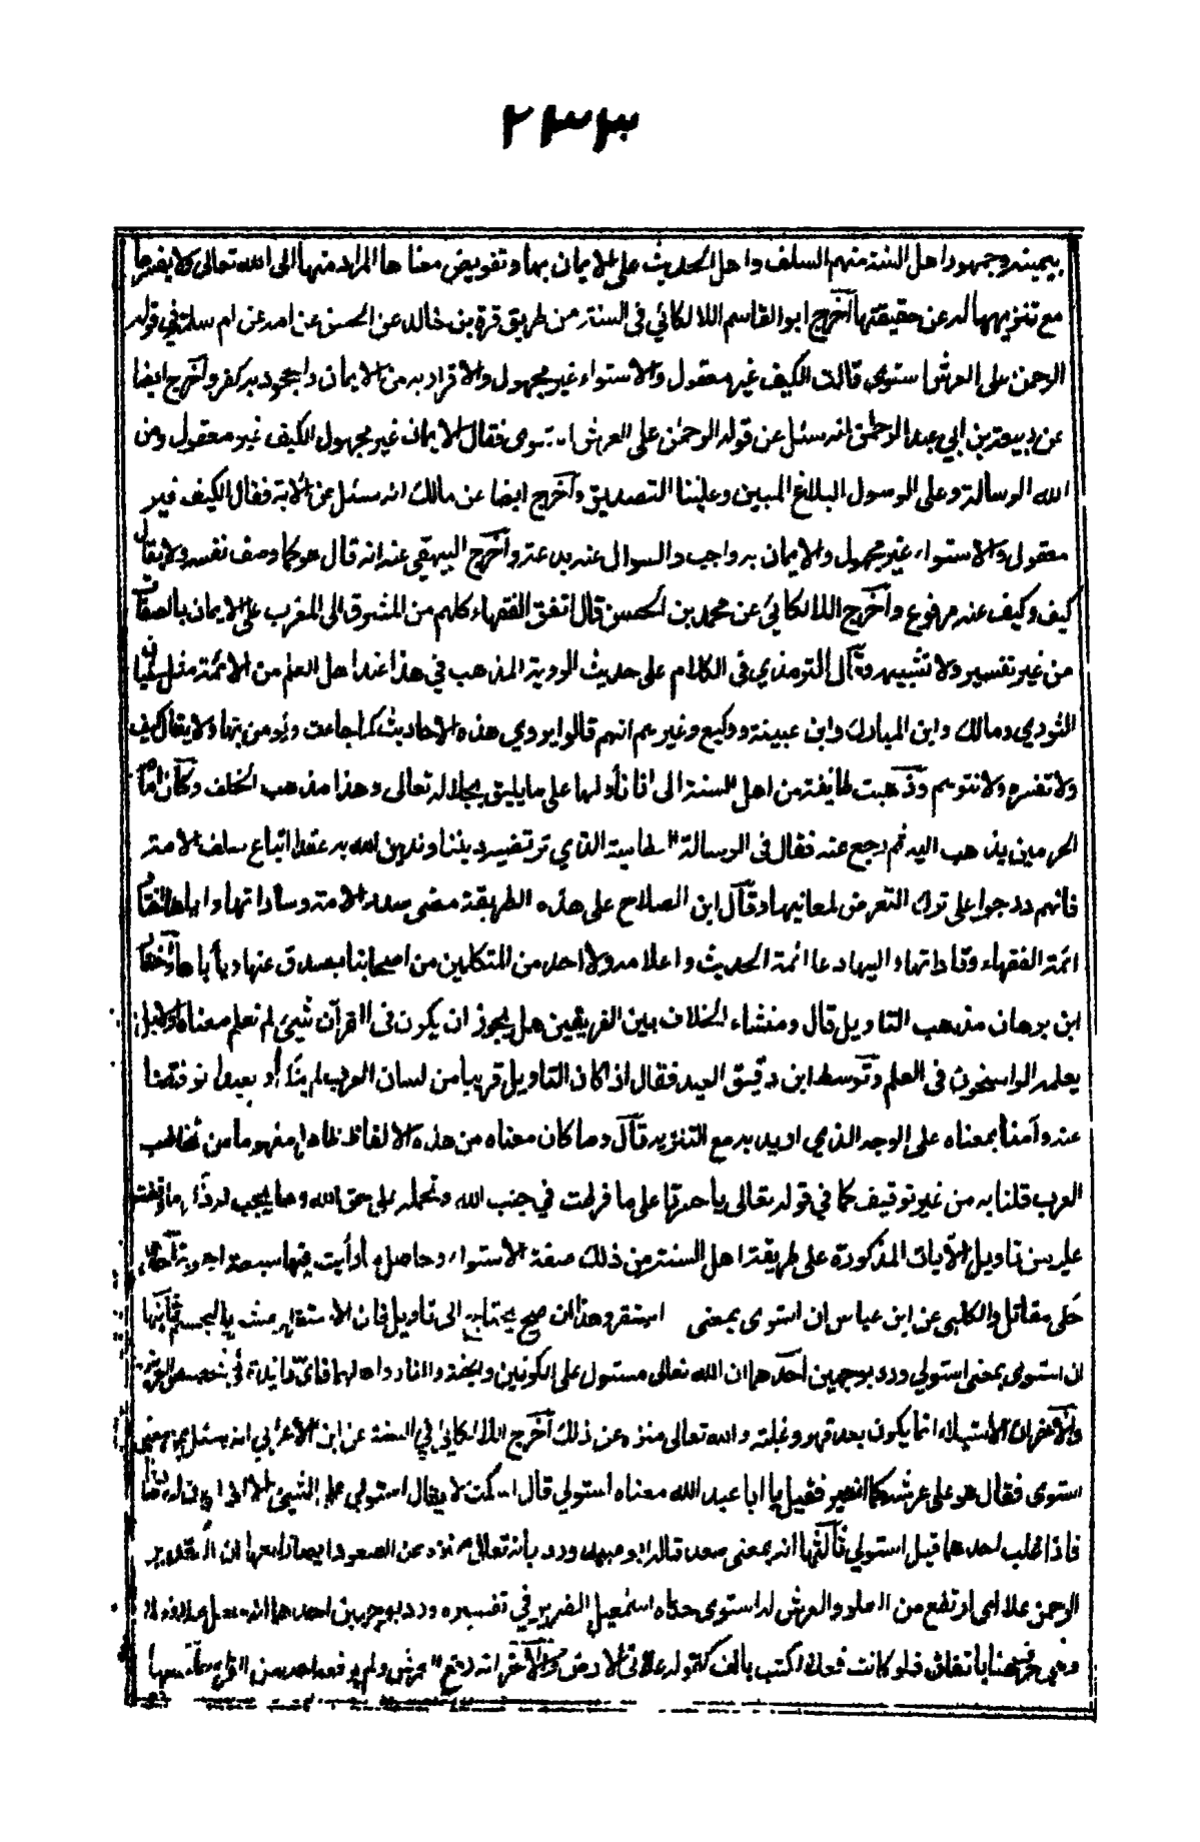 ٢٣٣
بيمينه وجمهور اهل السنة منهم السلف واهل الحديث على الايمان بها وتفويض معناها المراد منها الى الله تعالى ولا نفسرها
مع تنزيهنا له عن حقيقتها اخرج ابو القاسم اللالكائي فى السنة من طريق قرة بن خالد عن الحسن عن امه عن ام سلمة في قوله
الرحمن على العرش استوى قالت الكيف غير معقول والاستواء غير مجهول والاقرار به من الايمان والجحود به كفر واخرج ايضا
عن ربيعة بن ابي عبد الرحمن انه سئل عن قوله الرحمن على العرش استوى فقال الايمان غير مجهول الكيف غير معقول ومن
الله الرسالة وعلى الرسول البلاغ المبين وعلينا التصديق واخرج ايضا عن مالك انه سئل عن الاية فقال الكيف غير
معقول والاستواء غير مجهول والايمان به واجب والسوال عنه بدعة واخرج البيهقي عنه انه قال هو كما وصف نفسه ولا يقال
كيف وكيف عنه مرفوع واخرج اللالكائي عن محمد بن الحسن قال اتفق الفقهاء كلهم من المشرق الى المغرب على الايمان بالصفات
من غير تفسير ولا تشبيه وقال الترمذي فى الكلام على حديث الروية المذهب في هذا عند اهل العلم من الائمة مثل سفيان
الثوري ومالك وابن المبارك وابن عيينة ووكيع وغيرهم انهم قالوا يروي هذه الاحاديث كما جاءت ونومن بها ولا يقال كيف
ولا تفسر ولا نتوهم وذهبت طايفة من اهل السنة الى اننا نأولها على ما يليق بجلاله تعالى وهذا مذهب الخلف وكان امام
الحرمين يذهب اليه ثم رجع عنه فقال فى الرسالة النظامية الذي نرتضيه دينا وندين الله به عقدا اتباع سلف الامة
فانهم درجوا على ترك التعرض لمعانيها وقال ابن الصلاح على هذه الطريقة مضى صدر الامة وساداتها واياها اختار
ائمة الفقهاء وقاداتها واليها دعا ائمة الحديث واعلامه ولا احد من المتكلمين من اصحابنا يصدف عنها ويأباها واختار
ابن برهان مذهب التاويل قال ومنشاء الخلاف بين الفريقين هل يجوز ان يكون فى القرآن شيئ لم نعلم معناه او لا بل
يعلمه الراسخون فى العلم وتوسط ابن دقيق العيد فقال اذا كان التاويل قريبا من لسان العرب لم ينكر أو بعيدا توقفنا
عنه وآمنا بمعناه على الوجه الذي اريد به مع التنزيه قال وما كان معناه من هذه الالفاظ ظاهرا مفهوما من تخاطب
العرب قلنا به من غير توقيف كما في قوله تعالى يا حسرتا على ما فرطت في جنب الله ونحمله على حق الله وما يجب له ذكر ما وقفت
عليه من تاويل الآيات المذكورة على طريقة اهل السنة من ذلك صفة الاستواء وحاصل ما رأيت فيها سبعة اجوبة احدها
حكى مقاتل والكلبى عن ابن عباس ان استوى بمعنى استقر وهذا ان صح يحتاج الى تاويل فان الاستقرار يشعر بالتجسيم ثانيها
ان استوى بمعنى استولي ورد بوجهين احدهما ان الله تعالى مستول على الكونين والجنة والنار واهلهما فاى فايدة فى تخصيص العرش
والاخر ان الاستيلاء انما يكون بعد قهر وغلبة والله تعالى منزه عن ذلك اخرج اللالكائي في السنة عن ابن الاعرابي انه سئل عن معنى
استوى فقال هو على عرشه كما اخبر فقيل يا ابا عبد الله معناه استولي قال اسكت لا يقال استولي على الشيئ الا اذا كان له مضاد
فاذا غلب احدهما قيل استولي ثالثها انه بمعنى صعد قاله ابو عبيد ورد بانه تعالى منزه عن الصعود ايضا رابعها ان التقدير
الرحمن علا اى ارتفع من العلو والعرش له استوى حكاه اسمعيل الضرير في تفسيره ورد بوجهين احدهما انه جعل على فعلا
وهى حرف هنا باتفاق فلو كانت فعلا كتبت بالف كقوله علا فى الارض والآخر انه رفع العرش ولم يرفعه احد من القراء خامسها